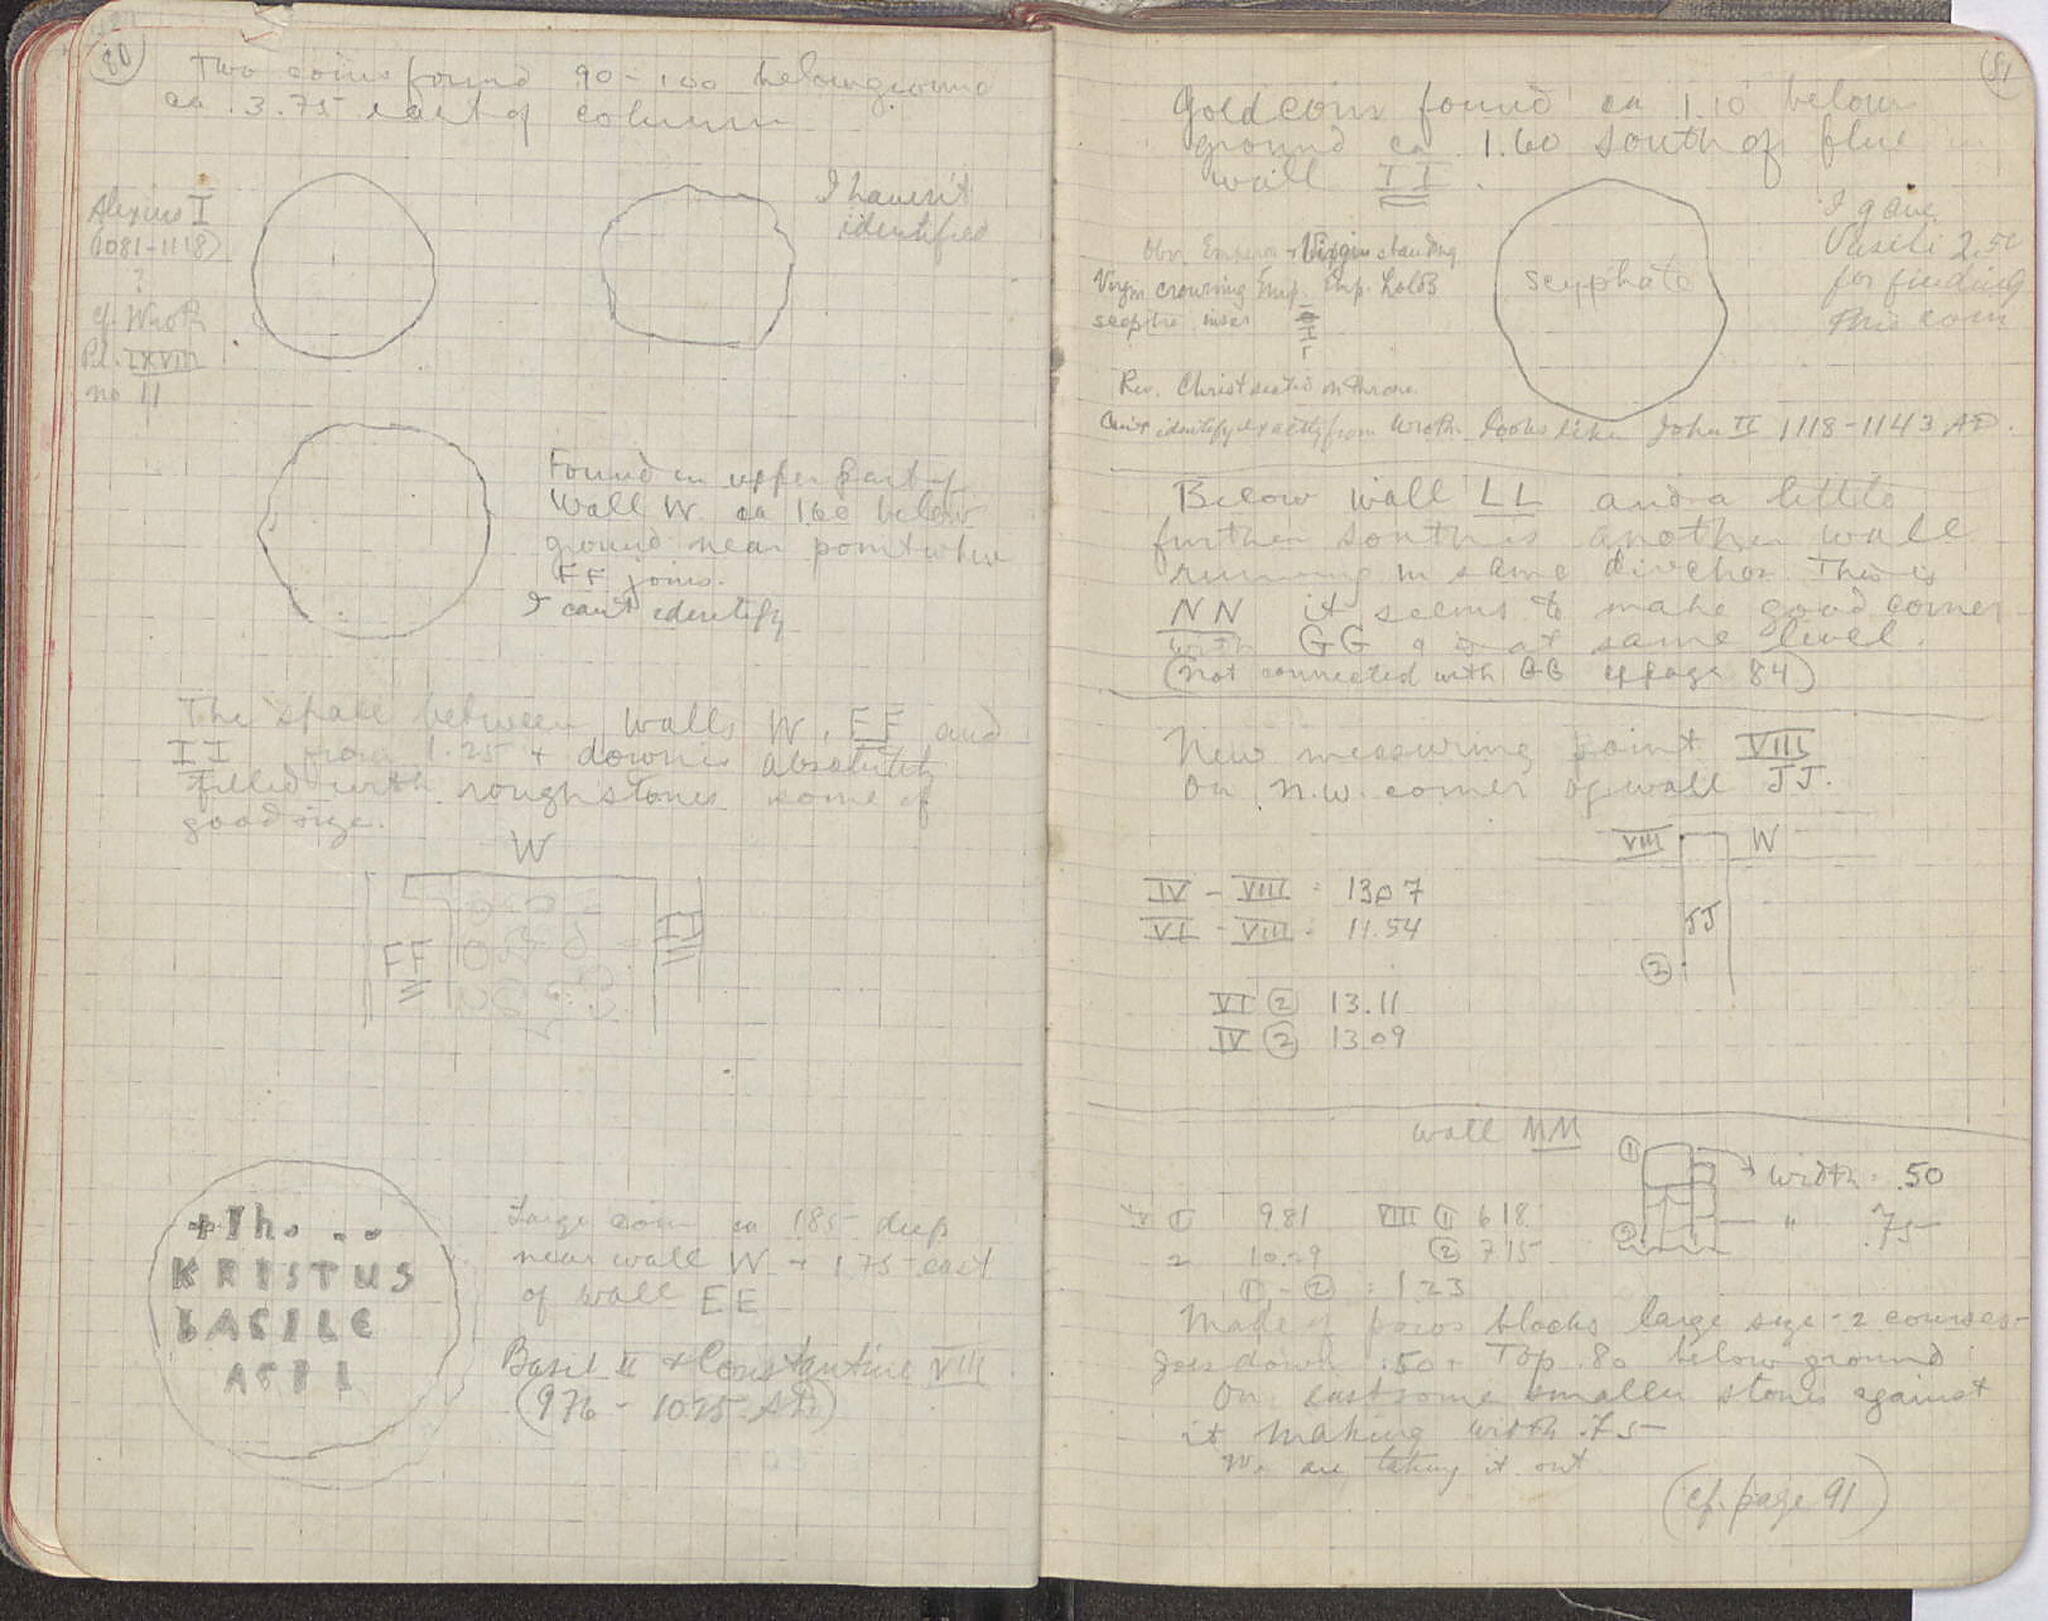 80
Two coins found 90-100 below ground
ca. 3.75 east of column
Alexius I
(1081-1118)
?
cf. Wroth
Pl. LXVIII
no 11
I haven't
identified
Found in upper part of
Wall W ca 1.60 below
ground near point where
FF joins.
I can't identify
The space between walls W, FF and
II from 1.25 + down is absolutely
filled with rough stones some of
good size.
W
FF
II
KRISTUS
BASILE
Large coin ca 1.85 deep
near wall W + 1.75 east
of wall EE
Basil II + Constantine VIII
(976 - 1025 AD)
81
Gold coin found ca 1.10 below
ground ca. 1.60 south of
wall II.
I gave
Vasili 2.50
for finding
this coin
scyphate
Obv. Emperor + Virgin standing
Virgin crowning Emp. Emp. holds
sceptre
Rev. Christ seated on throne
Can't identify exactly from Wroth. Looks like John II 1118-1143 AD.
Below wall LL and a little
further south is another wall
running in same direction. This is
NN it seems to make good corner
with GG + is at same level.
(not connected with GG cf page 84)
New measuring point VIII
on n.w. corner of wall JJ.
VIII W
JJ
2
IV - VIII : 13.07
VI - VIII : 11.54
VI 2 13.11
IV 2 13.09
wall MM
1
2
width : .50
" .75
1 9.81 VIII 1 6.18
2 10.29 2 7.15
1 - 2 : 1.23
Made of poros blocks large size - 2 courses
goes down .50. Top .80 below ground
On east some smaller stones against
it making width .75
We are taking it out
(cf. page 91)